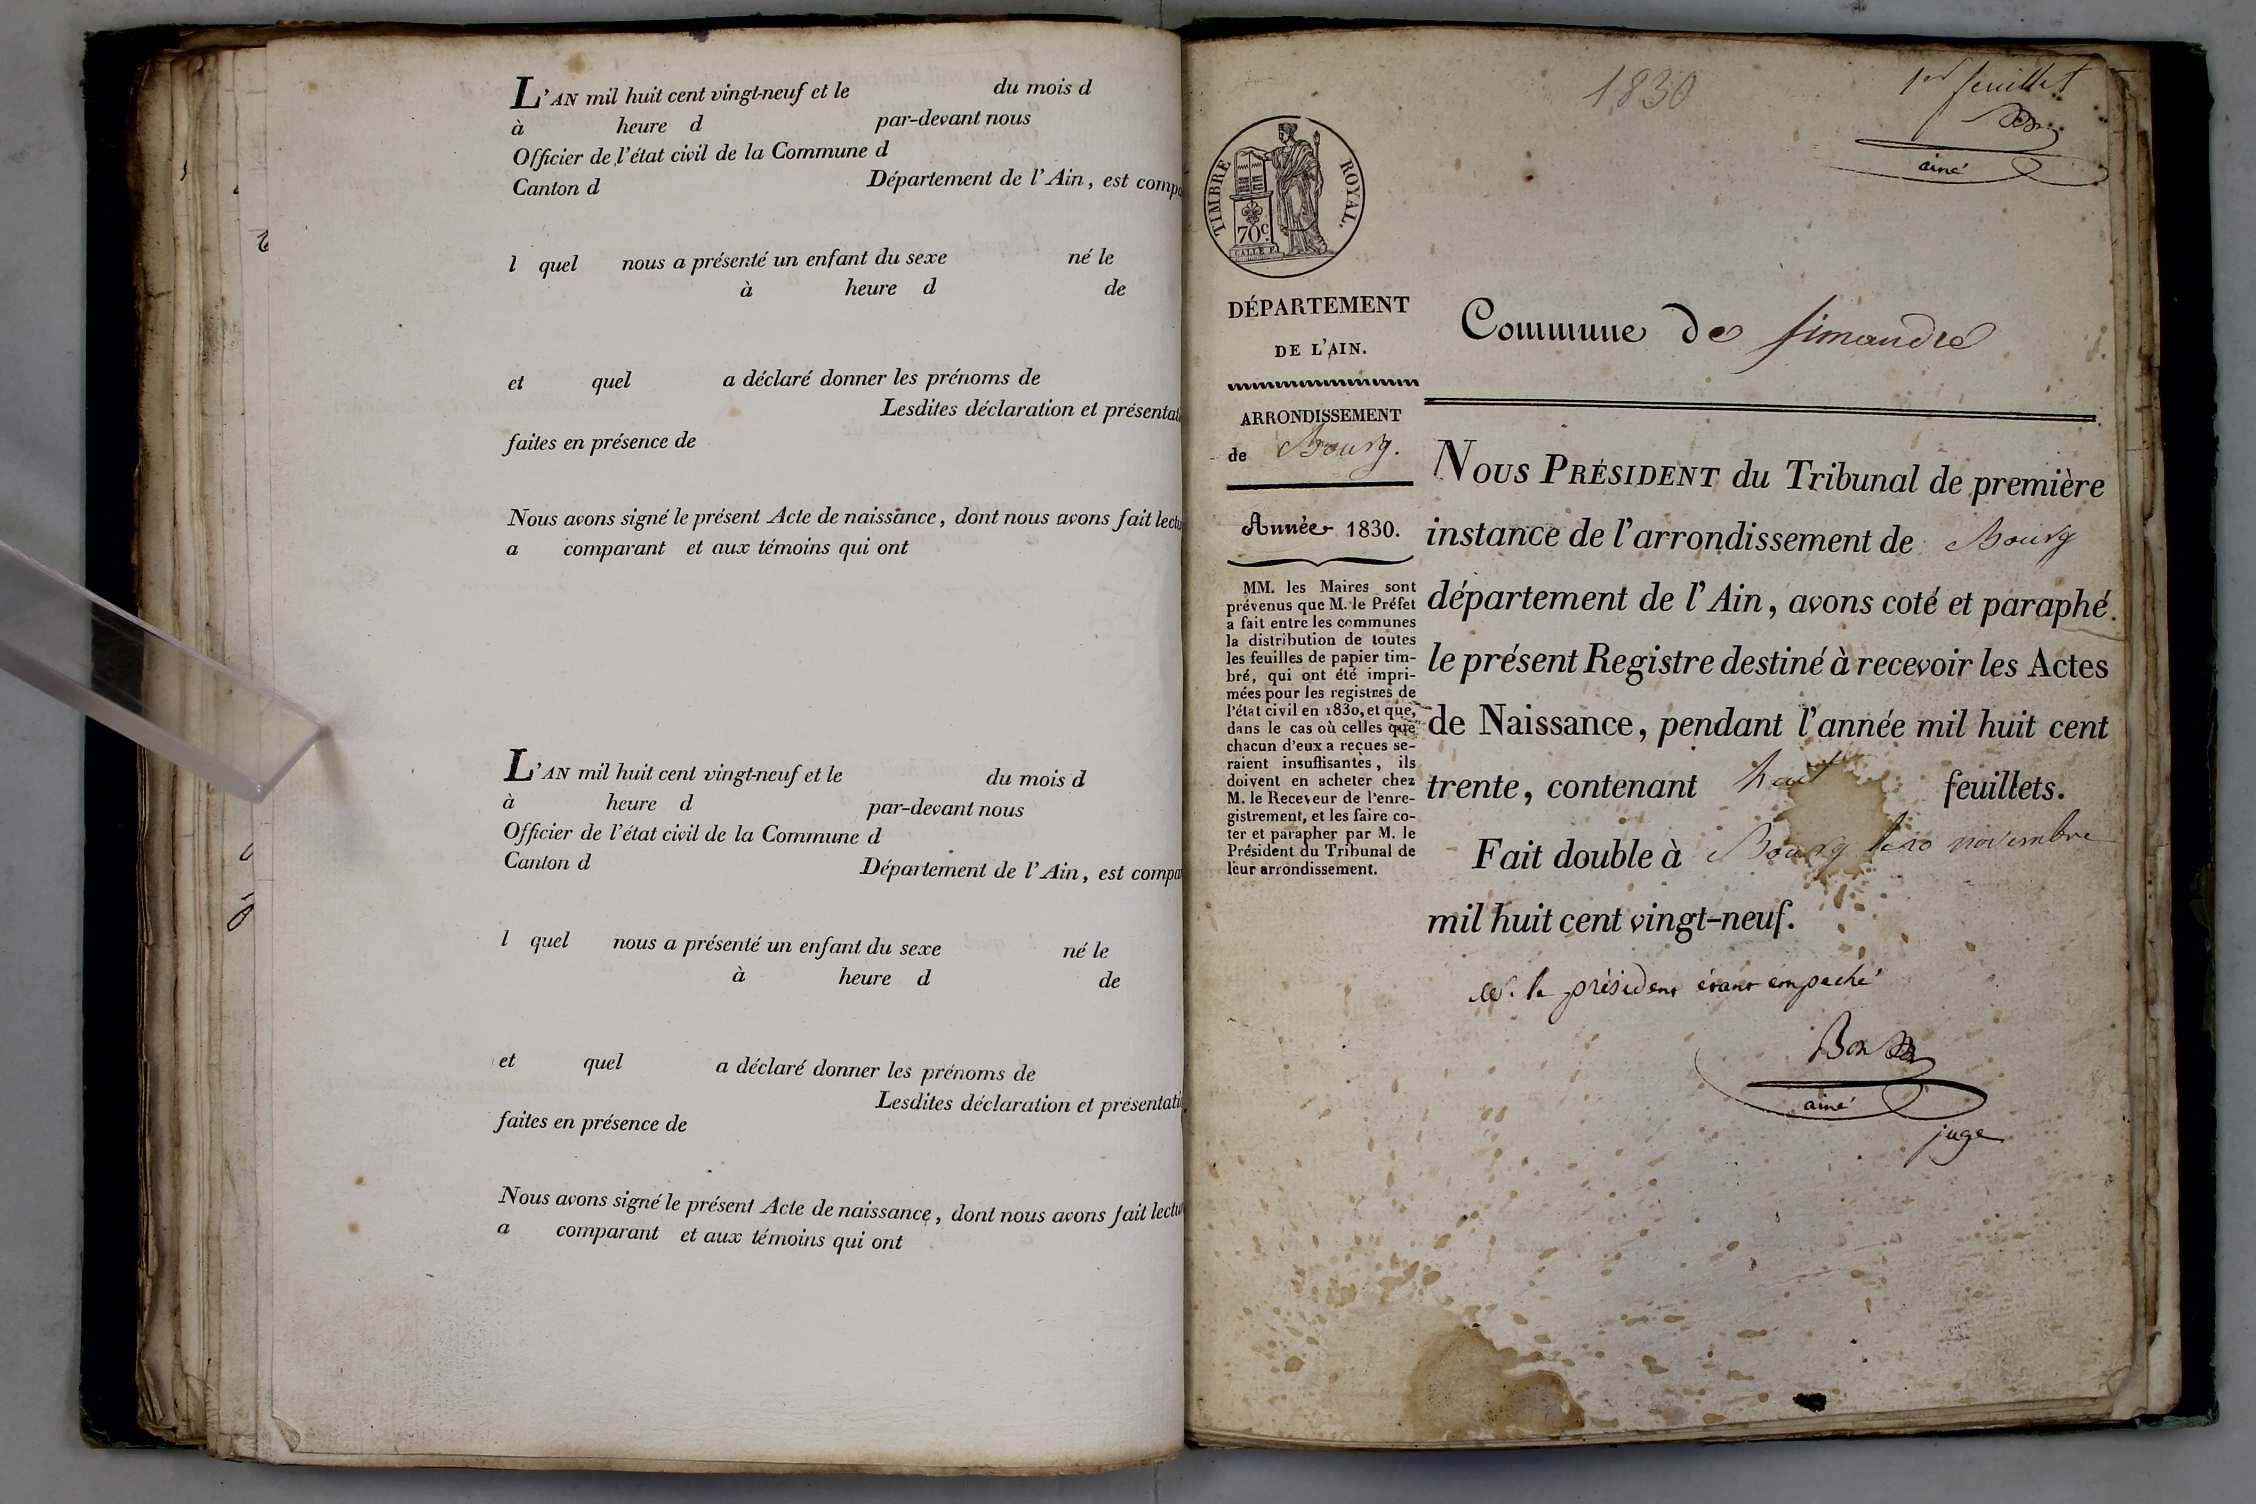 L'AN mil huit cent vingt-neuf et le du mois d
à heure d par-devant nous
Officier de l'état civil de la Commune d
Canton d Département de l'Ain, est comp
l quel nous a présenté un enfant du sexe né le
à heure d de
et quel a déclaré donner les prénoms de
Lesdites déclaration et présentati
faites en présence de
Nous avons signé le présent Acte de naissance, dont nous avons fait lectu
a comparant et aux témoins qui ont
L'AN mil huit cent vingt-neuf et le du mois d
à heure d par-devant nous
Officier de l'état civil de la Commune d
Canton d Département de l'Ain, est compa
l quel nous a présenté un enfant du sexe né le
à heure d de
et quel a déclaré donner les prénoms de
Lesdites déclaration et présentati
faites en présence de
Nous avons signé le présent Acte de naissance, dont nous avons fait lectu
a comparant et aux témoins qui ont
1830
1er feuillet
ainé
TIMBRE ROYAL.
70c
DÉPARTEMENT
DE L'AIN.
ARRONDISSEMENT
de Bourg.
Année 1830.
MM. les Maires sont
prévenus que M. le Préfet
a fait entre les communes
la distribution de toutes
les feuilles de papier tim-
bré, qui ont été impri-
mées pour les registres de
l'état civil en 1830, et que,
dans le cas où celles que
chacun d'eux a reçues se-
raient insuffisantes, ils
doivent en acheter chez
M. le Receveur de l'enre-
gistrement, et les faire co-
ter et parapher par M. le
Président du Tribunal de
leur arrondissement.
Commune de Simandre
NOUS PRÉSIDENT du Tribunal de première
instance de l'arrondissement de Bourg
département de l'Ain, avons coté et paraphé
le présent Registre destiné à recevoir les Actes
de Naissance, pendant l'année mil huit cent
trente, contenant huit feuillets.
Fait double à Bourg le 10 novembre
mil huit cent vingt-neuf.
Mr. le président étant empeché
ainé
juge